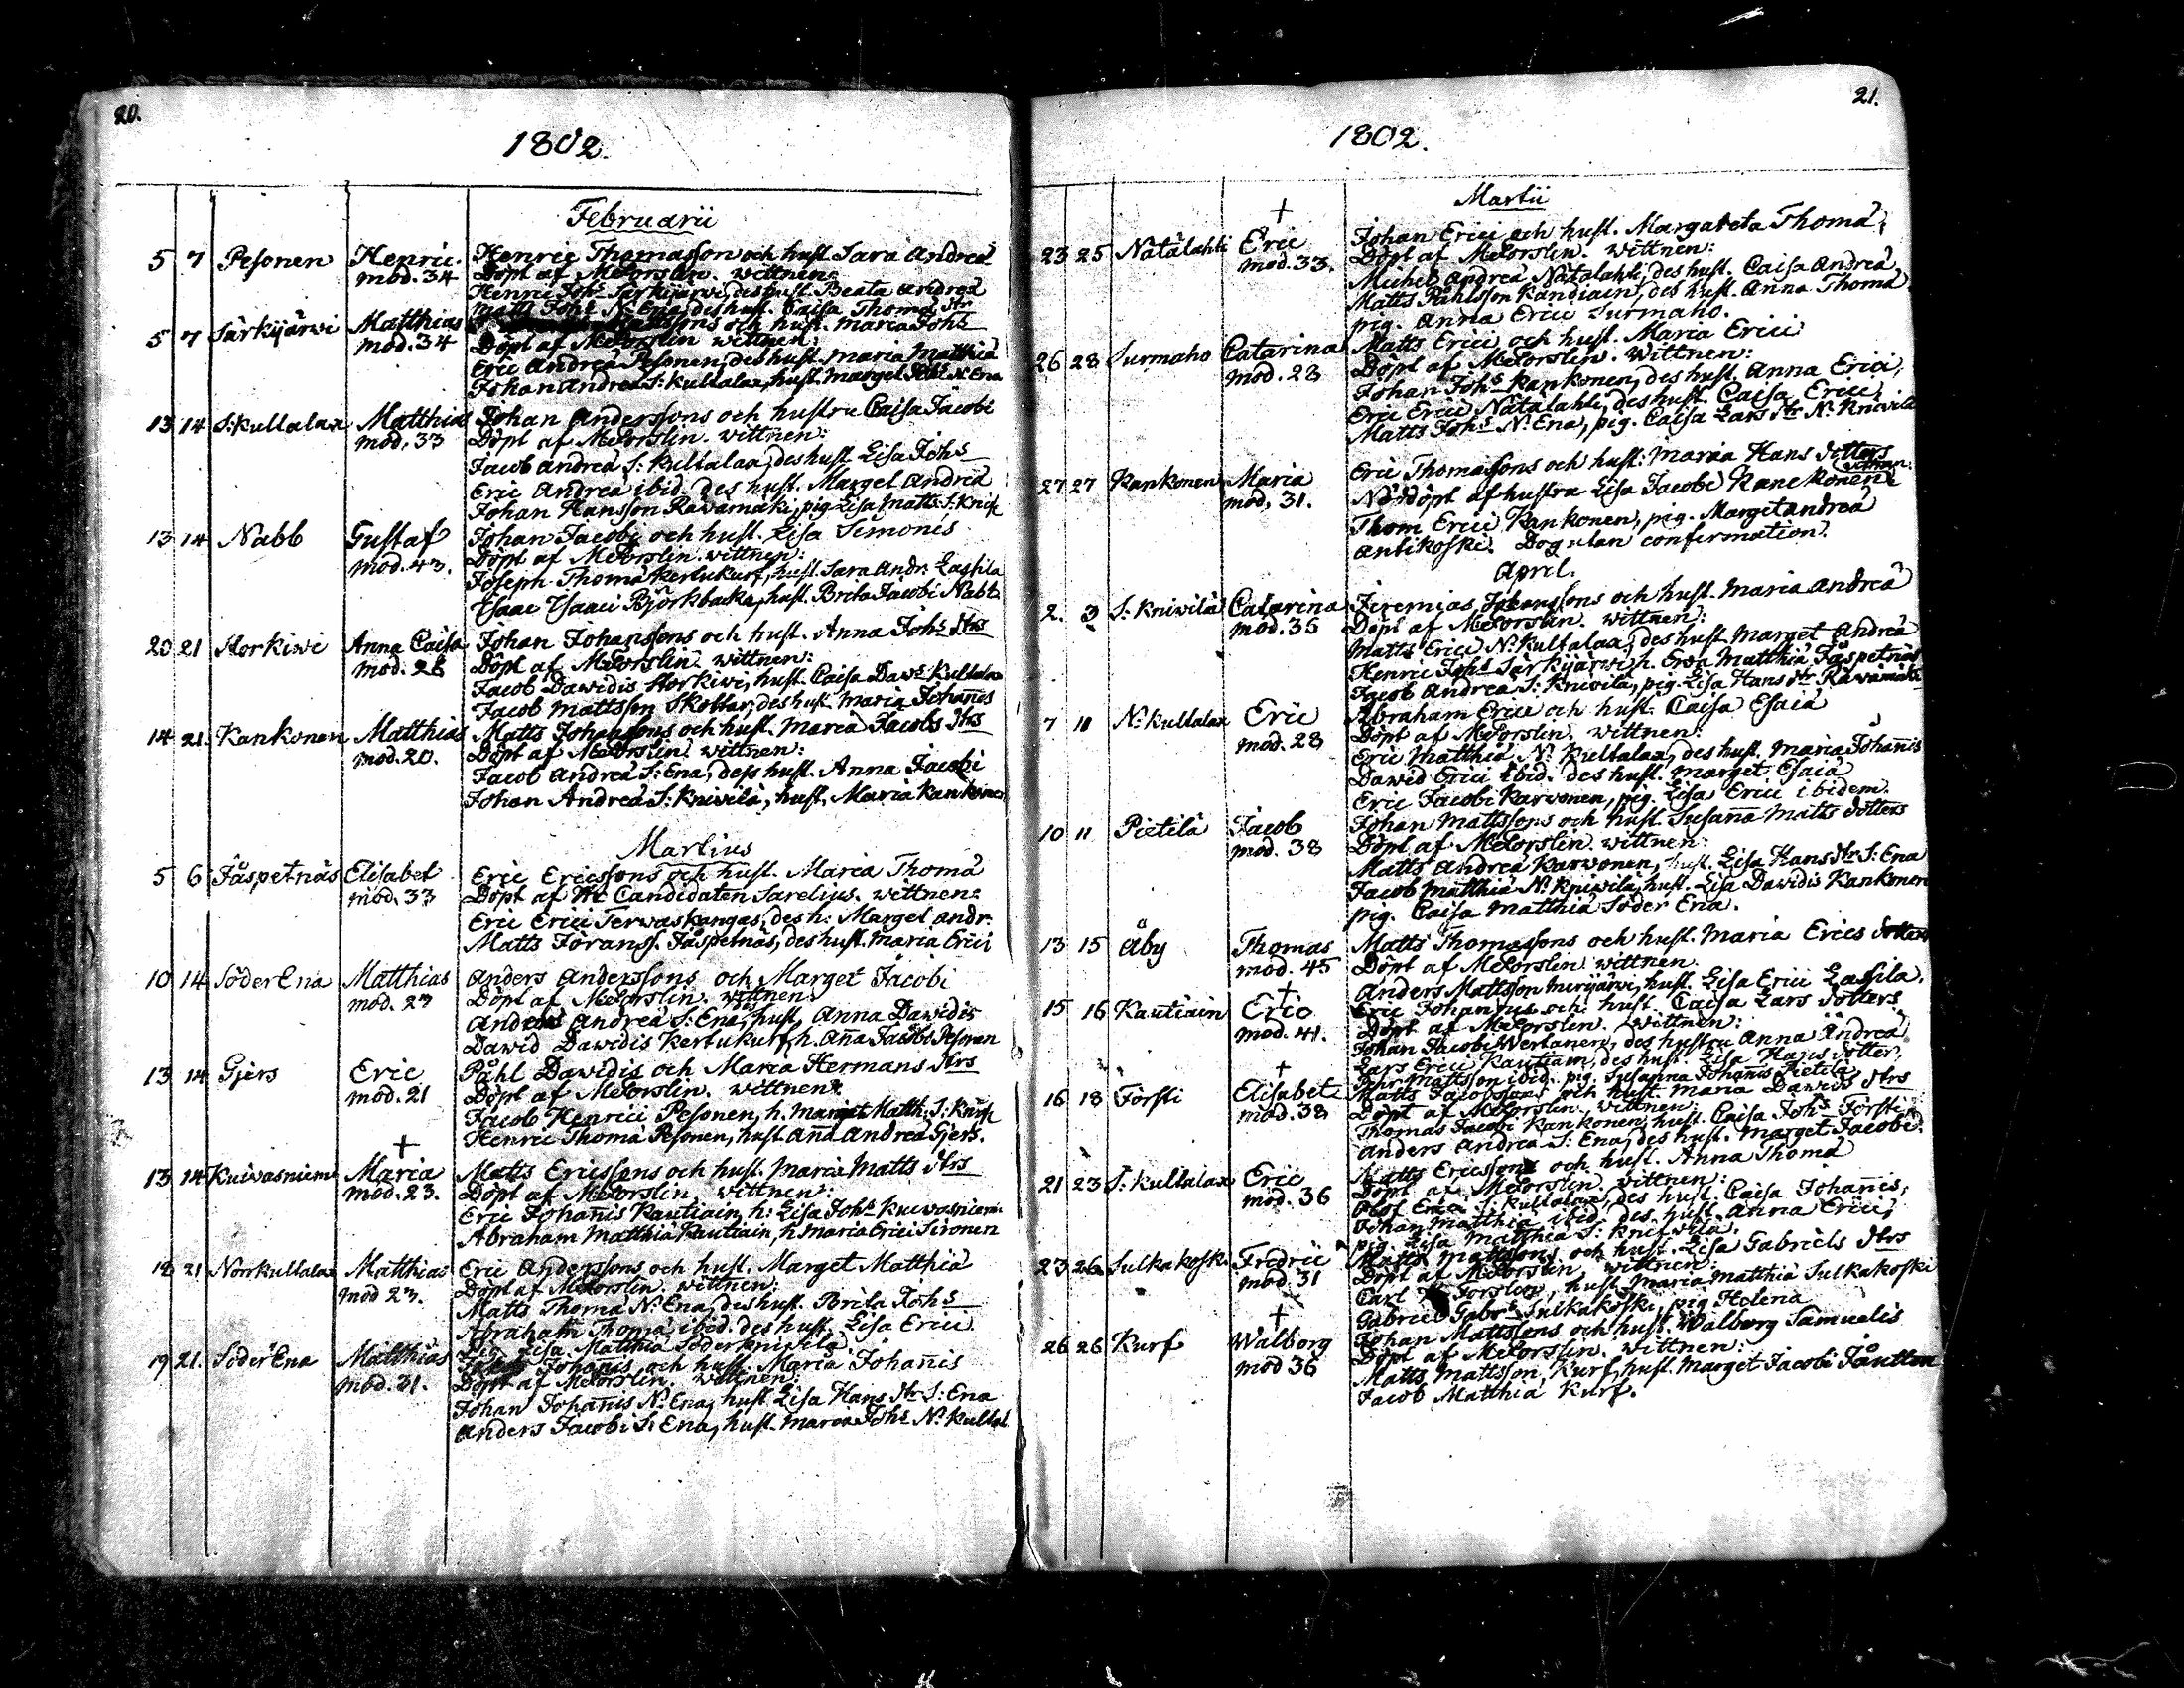 20.
1802.
Februarii
5 7 Pesonen Henric. Henric Thomasson och hust Sara Andreæ
mod. 34 Döpt af MCorslin. wittnen:
Henric Johs Särkijärwi, des hust. Beata Andreæ
Matts Johs N: Ena, des hust. Caisa Thomæ dtr
5 7 Särkijärwi Matthias och hust. Maria Johs
mod. 34 Döpt af MCorslin wittnen:
Eric Andreæ Pesonen, des hust. Maria Matthiæ
Johan Andreæ S: Kultalax, hust. Marget Johs N: Ena
13 14 S: Kultalax Matthias Johan Anderssons och hustru Caisa Jacobi
mod. 33 Döpt af MCorslin. wittnen:
Jacob Andreæ S: Kultalax, des hust Lisa Johs
Eric Andreæ ibid. des hust. Marget Andreæ
Johan Hansson Rawamäki, pig. Lisa Matts S: Knif
13 14 Nabb Gustaf Johan Jacobi och hust. Lisa Simonis
mod. 43. Döpt af MCorslin. wittnen:
Joseph Thomæ Kertukurf, hust. Sara Andr. Lassila
Isaac Isaaci Björkbacka, hust. Breta Jacobi Nabb
20 21 Storkiwi Anna Caisa Johan Johanssons och hust. Anna Johs dtrs
mod. 28 Döpt af MCorslin. wittnen:
Jacob Dawidis Storkiwi, hust. Caisa Daws Kultalax
Jacob Mattsson Skottar, des hust. Maria Johañis
14 21. Kankonen Matthias Matts Johanssons och hust. Maria Jacobs dtrs
mod. 20. Döpt af MCorslin. wittnen:
Jacob Andreæ S: Ena, dess hust. Anna Jacobi
Johan Andreæ S: Knivilä, hust. Maria Kankonen
Martius
5 6 Jåspetnäs Elisabet Eric Ericssons och hust. Maria Thomæ
mod. 33 Döpt af Hr Candidaten Sarelius. wittnen:
Eric Erici Terwaskangas, des h: Marget Andr.
Matts Göranss. Jåspetnäs, des hust. Maria Erici
10 14 Söder Ena Matthias Anders Anderssons och Marget Jacobi
mod. 23 Döpt af MCorslin. wittnen:
Anders Andreæ S: Ena, hust. Anna Dawidis
Dawid Dawidis Kertukurf, h. Aña Jacobi Pesonen
13 14 Gjers Eric Påhl Dawidis och Maria Hermans dtrs
mod. 21 Döpt af MCorslin. wittnen:
Jacob Henrici Pesonen, h. Marget Matth. S: Knif
Henric Thomæ Pesonen, hust. Aña Andreæ Gjers.
+
13 14 Kuiwasniemi Maria Matts Ericssons och hust. Maria Matts dtrs
mod. 23. Döpt af MCorslin. wittnen:
Eric Johañis Kautiain, h: Lisa Johs Kuiwasniemi
Abraham Matthiæ Kautiain, h. Maria Erici Sironen
18 21 Norrkultalax Matthias Eric Anderssons och hust. Marget Matthiæ
mod 23. Döpt af MCorslin. wittnen:
Matts Thomæ N: Ena, des hust. Brita Johs
Abraham Thomæ ibid. des hust. Lisa Erici
Pig. Lisa Matthiæ Söderknifvilä
19 21. Söder Ena Matthias Johañis och hust. Maria Johañis
mod. 31. Döpt af MCorslin. wittnen:
Johan Johañis N: Ena, hust Lisa Hans dtr S: Ena
Anders Jacobi S: Ena, hust. Maria Johs N: Kultal
21.
1802.
Martii
+
23 25 Natälahti Eric Johan Erici och hust. Margareta Thomæ
mod. 33. Döpt af MCorslin. wittnen:
Michel Andreæ Natälahti, des hust. Caisa Andreæ
Matts Påhlsson Kandiain, des hust. Anna Thomæ
pig. Anna Erici Surmaho.
26 28 Surmaho Catarina Matts Erici och hust. Maria Erici
mod. 28 Döpt af MCorslin. Wittnen:
Johan Johs Kankonen, des hust. Anna Erici,
Eric Erici Natälahti, des hust. Caisa Erici,
Matts Johs N: Ena, pig. Caisa Lars dtr N: Knivilä
27 27 Kankonen Maria Eric Thomassons och hust: Maria Hans dotters
mod. 31. Nöddöpt af hustru Lisa Jacobi Kanckonen wittnen:
Thom Erici Kankonen, pig. Marget Andreæ
Antikoski. Dog utan confirmation.
April.
2. 3 S: Knivilä Catarina Jeremias Johanssons och hust. Maria Andreæ
mod. 35 Döpt af MCorslin. wittnen:
Matts Erici N: Kultalax, des hust. Marget Andreæ
Henric Johs Särkijärwi h. Ewa Matthiæ Jåspetnäs
Jacob Andreæ S: Knivilä, pig. Lisa Hans dtr Rawamäki
7 11 N: Kultalax Eric Abraham Erici och hust. Caisa Esaiæ
mod. 28 Döpt af MCorslin. wittnen:
Eric Matthiæ N: Kultalax, des hust. Maria Johañis
Dawid Erici ibid. des hust. Marget Esaiæ
Eric Jacobi Karvonen, pig. Lisa Erici ibidem.
10 11 Pietilä Jacob Johan Mattssons och hust. Susaña Matts dotters
mod. 38 Döpt af MCorslin. wittnen:
Matts Andreæ Karwonen, hust. Lisa Hans dtr S: Ena
Jacob Matthiæ N: Knivilä, hust. Lisa Dawidis Kankonen
pig. Caisa Matthiæ Söder Ena.
13 15 Åby Thomas Matts Thomassons och hust. Maria Erics dotters
mod. 45 Döpt af MCorslin. wittnen.
Anders Mattsson Merijärwi, hust. Lisa Erici Lassila.
+
15 16 Kautiain Eric Eric Johannis och hust. Caisa Lars dotters
mod. 41. Döpt af MCorslin. wittnen:
Johan Jacobi Wertanen, des hustru Anna Andreæ
Lars Erici Kautiain, des hust. Lisa Hans dotter,
Pehr Mattsson ibid. pig. Susanna Johañis Pietilä
+
16 18 Försti Elisabet Matts Jacobssons och hust. Maria Dawids dtrs
mod. 38 Döpt af MCorslin. wittnen:
Thomas Jacobi Kankonen, hust. Caisa Johs Försti
Anders Andreæ S: Ena, des hust. Marget Jacobi.
21 23 S: Kultalax Eric Matts Ericssons och hust. Anna Thomæ
mod. 36 Döpt af MCorslin. wittnen:
Olof Erici S: Kultalax, des hust. Caisa Johañis,
Johan Matthiæ ibid. des hust. Anna Erici,
pig. Lisa Matthiæ S: Knifvilä.
23 26 Sulkakoski Fredric Matts Mattssons och hust. Lisa Gabriels dtrs
mod. 31 Döpt af MCorslin. wittnen:
Carl Forslöw, hust. Maria Matthiæ Sulkakoski
Gabriel Gabrs Sulkakoski, pig Helena
+
26 26 Kurf Walborg Johan Mattssons och hust. Walborg Samuelis
mod 36 Döpt af MCorslin. wittnen:
Matts Mattsson Kurf, hust. Marget Jacobi
Jacob Matthiæ Kurf.